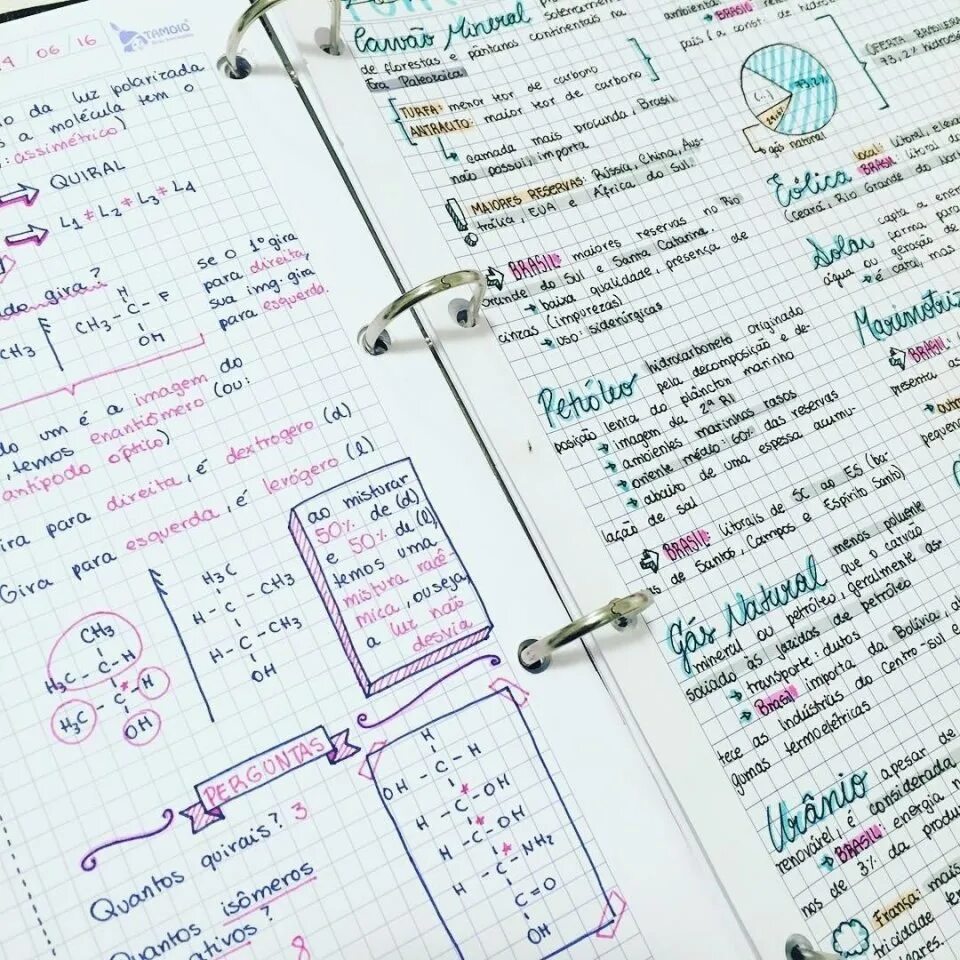 / 06 / 16
TAMOIO
da luz polarizada
a molécula tem o
assimétrico)
QUIRAL
L1 ≠ L2 ≠ L3 ≠ L4
gira?
CH3
H
CH3 - C - F
OH
se o 1º gira
para direita,
sua img. gira
para esquerda.
um é a imagem do
, temos enantiômero (ou:
antípodo óptico)
para direita, é dextrogero (d)
Gira para esquerda, é levógero (l)
ao misturar
50% de (d)
e 50% de (l),
temos uma
mistura racê-
mica, ou seja,
a luz não
desvia
CH3
H3C - C - H
H3C - C* - H
OH
H3C
H - C - CH3
H - C - CH3
OH
PERGUNTAS
Quantos quirais? 3
Quantos isômeros
ativos?
8
H
OH - C - H
H - C* - OH
H - C* - OH
H - C* - NH2
C = O
OH
Carvão Mineral
de florestas e pântanos continentais na
Era Paleozoica
TURFA: menor teor de carbono
ANTRACITO: maior teor de carbono
camada mais profunda, Brasil
não possui, importa
MAIORES RESERVAS: Rússia, China, Aus-
trália, EUA e África do Sul
BRASIL: maiores reservas no Rio
Grande do Sul e Santa Catarina
baixa qualidade, presença de
cinzas (impurezas)
uso: siderúrgicas
Petróleo hidrocarboneto originado
pela decomposição e de-
posição lenta do plâncton marinho
imagem da 2ª RI
ambientes marinhos rasos
oriente médio: 60% das reservas
abaixo de uma espessa acumu-
lação de sal
BRASIL: litorais de SC ao ES (ba-
as de Santos, Campos e Espírito Santo)
Gás Natural menos poluente
que o carvão
mineral ou petróleo, geralmente as-
sociado às jazidas de petróleo
transporte: dutos
Brasil importa da Bolívia,
tece as indústrias do Centro-sul e
gumas termoelétricas
Urânio apesar de
renovável, é considerada
BRASIL: energia
nos de 3% da produ
França: mais
tricidade
BRASIL
país (a const. de
73,2%
gás natural
OFERTA
73,2% hidro
Eólica
local: litoral,
BRASIL: litoral do
(Ceará, Rio Grande do
Solar capta a ener
forma
água ou geração de
é cara, mas
Maremotriz
BRASIL:
presenta
pequen